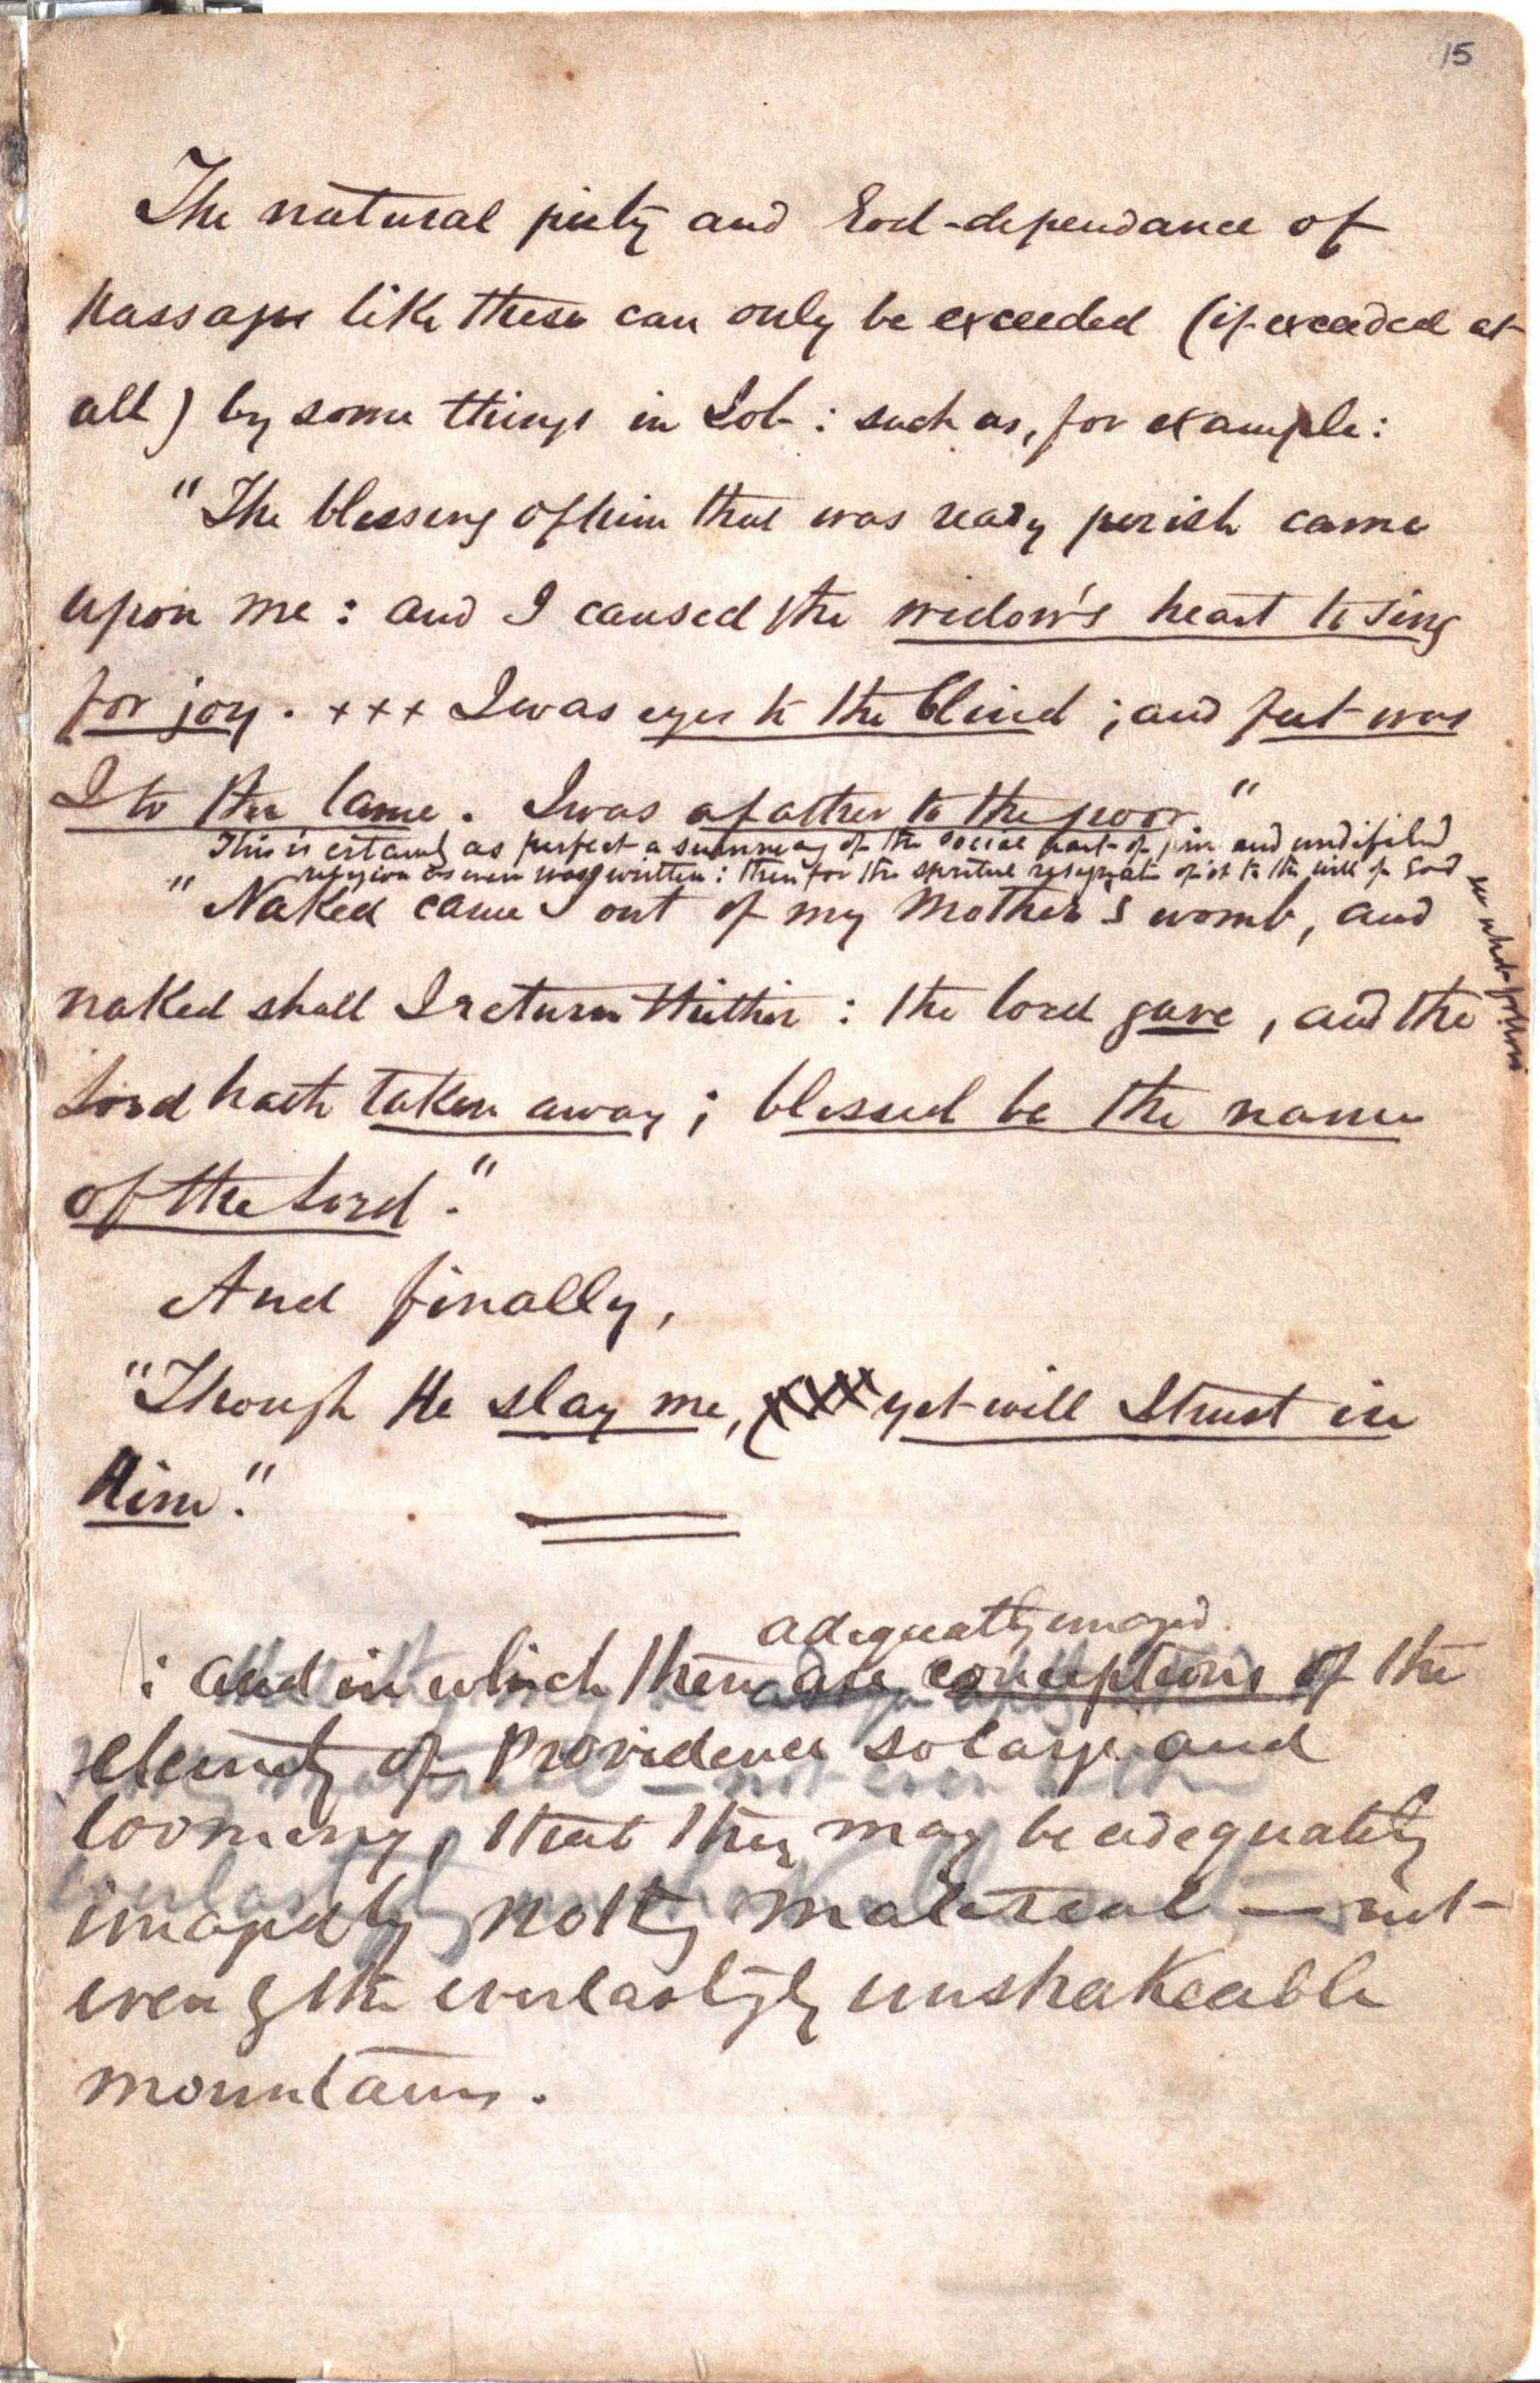 15
The natural piety and God-dependance of
passages like these can only be exceeded (if exceeded at
all) by some things in Job: such as, for example:
"The blessing of him that was ready perish came
upon me: and I caused the widow's heart to sing
for joy. +++ I was eyes to the blind; and feet was
I to the lame. I was a father to the poor"
This is certainly as perfect a summary of the social part of pure and undefiled
religion as ever was written: then for the spiritual resignation of it to the will of God
see what follows
"Naked came I out of my Mother's womb, and
naked shall I return thither: the Lord gave, and the
Lord hath taken away; blessed be the name
of the Lord."
And finally,
"Though He slay me, yet will I trust in
Him."
adequately imaged
: and in which there are conceptions of the
eternity of Providence so large and
looming, that they may be adequately
imaged by nothing material — not
even by the everlastingly unshakeable
mountains.